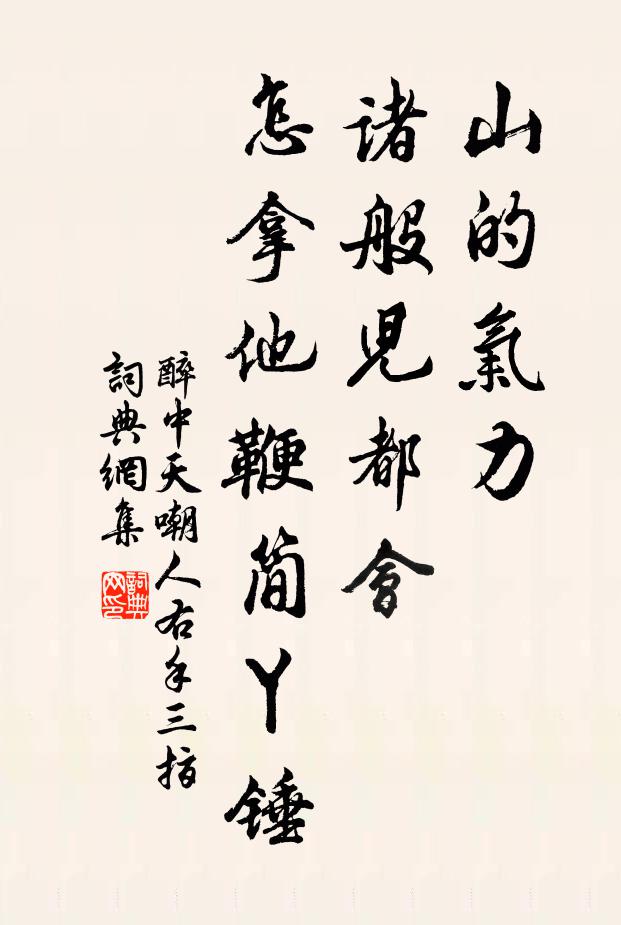 山的氣力
諸般兒都會
怎拿他鞭简丫錘
醉中天嘲人右手三指
詞典網集
詞典网印